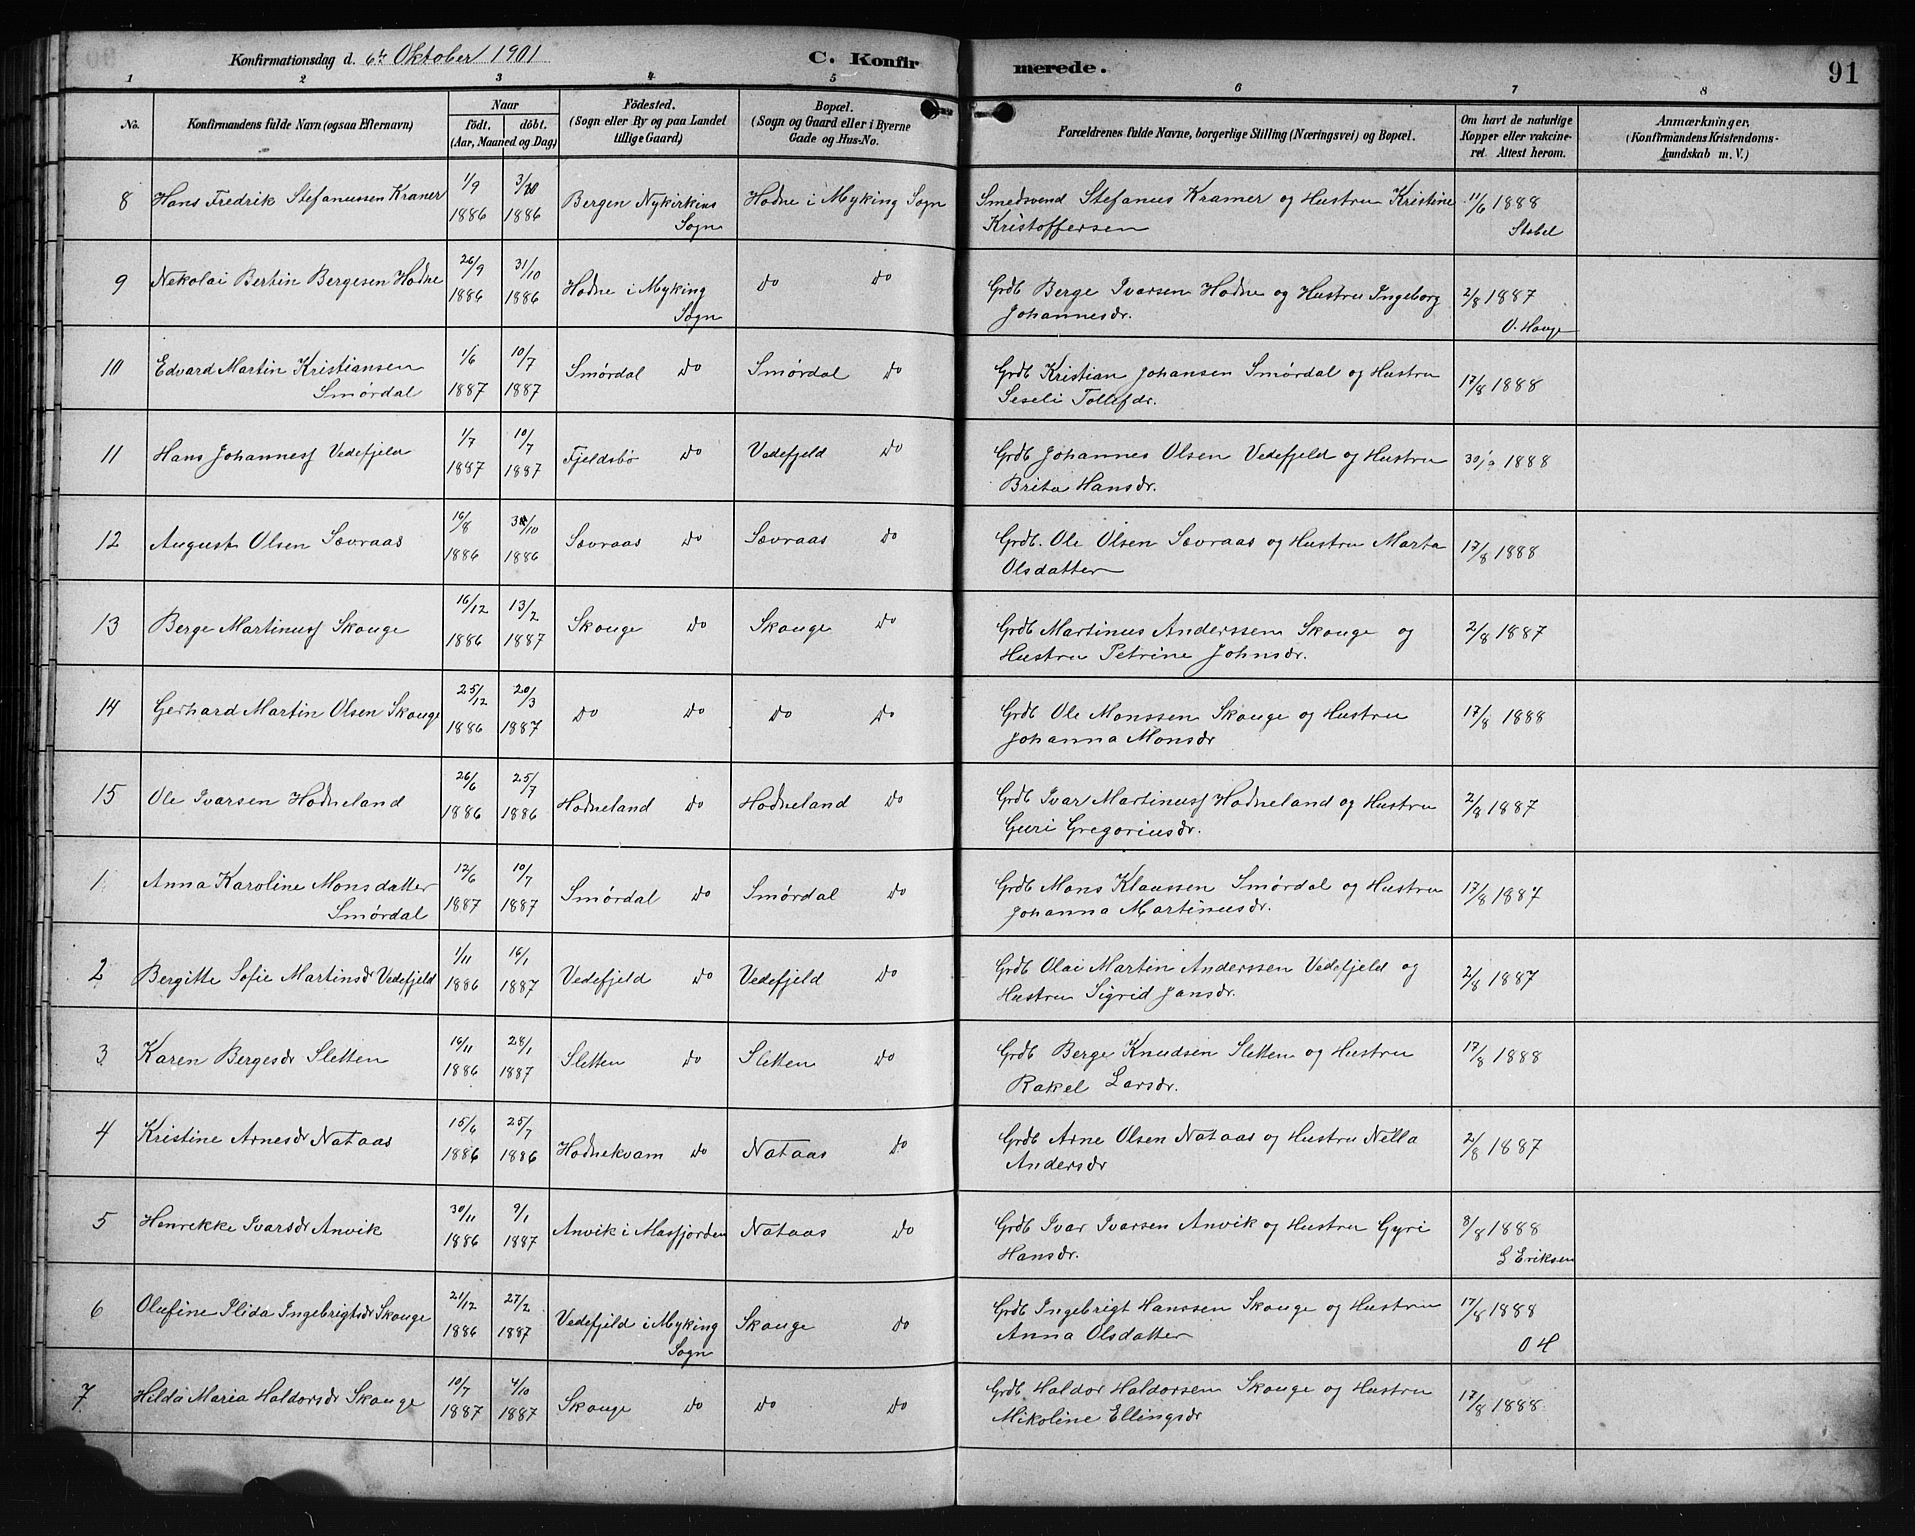 Konfirmationsdag d. 6te Oktober 1901
C. Konfirmerede.
91
1 2 3 4 5 6 7 8
No.
Konfirmandens fulde Navn (ogsaa Efternavn)
Naar
födt. döbt.
(Aar, Maaned og Dag)
Födested.
(Sogn eller By og paa Landet
tillige Gaard)
Bopæl.
(Sogn og Gaard eller i Byerne
Gade og Hus-No.
Forældrenes fulde Navne, borgerlige Stilling (Næringsvei) og Bopæl.
Om havt de naturlige
Kopper eller vakcine-
ret. Attest herom.
Anmærkninger,
(Konfirmandens Kristendoms-
kundskab m. V.)
8 Hans Fredrik Stefanussen Kramer 1/9 1886 3/10 1886 Bergen Nykirkens Sogn Hodne i Myking Sogn Smedsvend Stefanus Kramer og Hustru Kristine
Kristoffersen 11/6 1888 Stabel
9 Nekolai Bertin Bergesen Hodne 26/9 1886 31/10 1886 Hodne i Myking Sogn Do Do Grdb Berge Ivarsen Hodne og Hustru Ingeborg
Johannesdr. 2/8 1887 O. Hauge
10 Edvard Martin Kristiansen
Smördal 1/6 1887 10/7 1887 Smördal Do Smördal Do Grdb Kristian Johansen Smördal og Hustru
Seseli Tollefdr. 17/8 1888
11 Hans Johannesf Vedefjeld 1/7 1887 10/7 1887 Fjeldsbö Do Vedefjeld Do Grdb Johannes Olsen Vedefjeld og Hustru
Brita Hansdr. 1888
12 August Olsen Sævraas 16/8 1886 /10 1886 Sævraas Do Sævraas Do Grdb. Ole Olsen Sævraas og Hustru Marta
Olsdatter 17/8 1888
13 Berge Martinusf Skauge 16/12 1886 13/2 1887 Skauge Do Skauge Do Grdb Martinus Anderssen Skauge og
Hustru Petrine Johnsdr. 2/8 1887
14 Gerhard Martin Olsen Skauge 25/12 1886 20/3 1887 Do Do Do Do Grdb Ole Monssen Skauge og Hustru
Johanna Monsdr 17/8 1888
15 Ole Ivarsen Hodneland 26/6 1886 25/7 1886 Hodneland Do Hodneland Do Grdb Ivar Martinusf Hodneland og Hustru
Guri Gregoriusdr. 2/8 1887
1 Anna Karoline Monsdatter
Smördal 12/6 1887 10/7 1887 Smördal Do Smördal Do Grdb Mons Klaussen Smördal og Hustru
Johanna Martinusdr. 17/8 1887
2 Bergitte Sofie Martinsdr Vedefjeld 1/11 1886 16/1 1887 Vedefjeld Do Vedefjeld Do Grdb Olai Martin Anderssen Vedefjeld og
Hustru Sigrid Jansdr. 2/8 1887
3 Karen Bergesdr Sletten 16/11 1886 28/1 1887 Sletten Do Sletten Do Grdb Berge Knudsen Sletten og Hustru
Rakel Larsdr. 17/8 1888
4 Kristine Arnesdr Nataas 15/6 1886 25/7 1886 Hodnekvam Do Nataas Do Grdb Arne Olsen Nataas og Hustru Nella
Andersdr 2/8 1887
5 Henrekke Ivarsdr Anvik 30/11 1886 9/1 1887 Anvik i Masfjorden Nataas Do Grdb Ivar Ivarsen Anvik og Hustru Gyri
Hansdr. 8/8 1888 Eriksen
6 Olufine Ilida Ingebrigtsdr Skauge 21/12 1886 27/2 1887 Vedefjeld i Myking Sogn Skauge Do Grdb Ingebrigt Hanssen Skauge og Hustru
Anna Olsdatter 17/8 1888 O H
7 Hilda Maria Haldorsdr Skauge 10/7 1887 4/10 1887 Skauge Do Do Do Grdb Haldor Haldorsen Skauge og Hustru
Mikoline Ellingsdr 17/8 1888